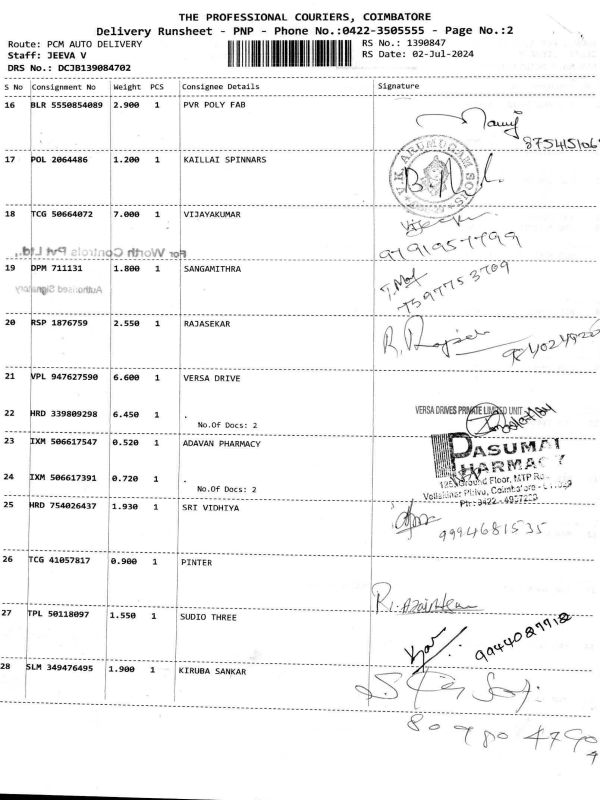 THE PROFESSIONAL COURIERS, COIMBATORE
Delivery Runsheet - PNP - Phone No.:0422-3505555 - Page No.:2
Route: PCM AUTO DELIVERY RS No.: 1390847
Staff: JEEVA V RS Date: 02-Jul-2024
DRS No.: DCJB139084702
S No Consignment No Weight PCS Consignee Details Signature
16 BLR 5550854089 2.900 1 PVR POLY FAB
17 POL 2064486 1.200 1 KAILLAI SPINNARS
V.K. ARUMUGAM SONS
18 TCG 50664072 7.000 1 VIJAYAKUMAR
9791957799
For Worth Controls Pvt Ltd.,
19 DPM 711131 1.800 1 SANGAMITHRA
7597753709
Authorised Signatory
20 RSP 1876759 2.550 1 RAJASEKAR
21 VPL 947627590 6.600 1 VERSA DRIVE
22 HRD 339809298 6.450 1 .
No.Of Docs: 2
VERSA DRIVES PRIVATE LIMITED UNIT
23 IXM 506617547 0.520 1 ADAVAN PHARMACY
PASUMAI
PHARMACY
24 IXM 506617391 0.720 1 .
No.Of Docs: 2
Ground Floor, MTP
25 HRD 754026437 1.930 1 SRI VIDHIYA
9994681535
26 TCG 41057817 0.900 1 PINTER
27 TPL 50118097 1.550 1 SUDIO THREE
9944087718
28 SLM 349476495 1.900 1 KIRUBA SANKAR